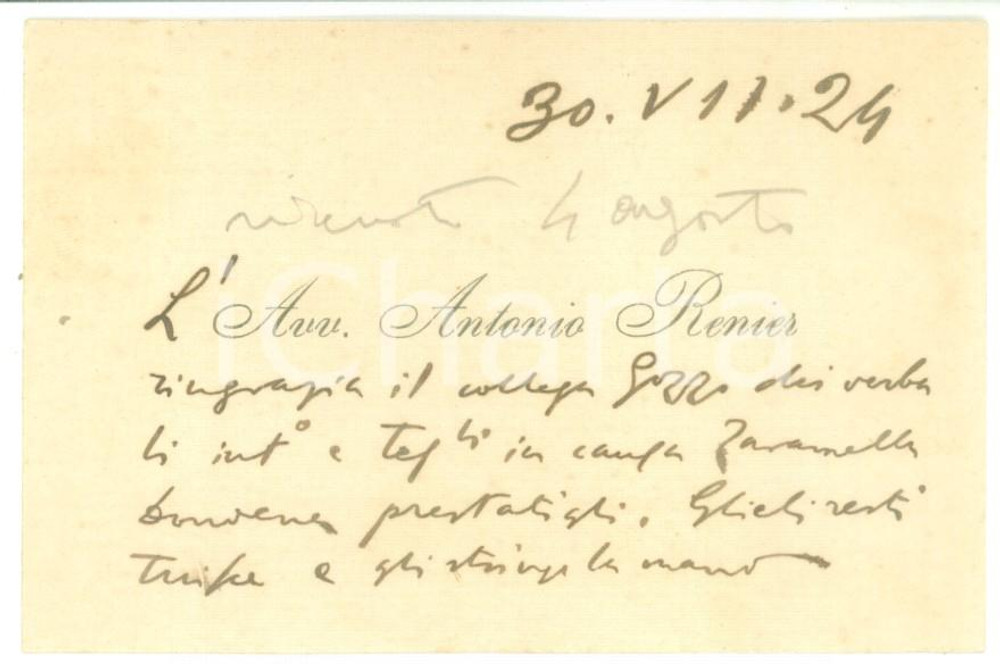 30.VII.24
ricevuto 4 agosto
L'Avv. Antonio Renier
ringrazia il collega Gozzi dei verba
li int° e tes^li in causa Zaramella
prestatigli. Glieli resti
tuisce e gli stringe la mano
iCharta